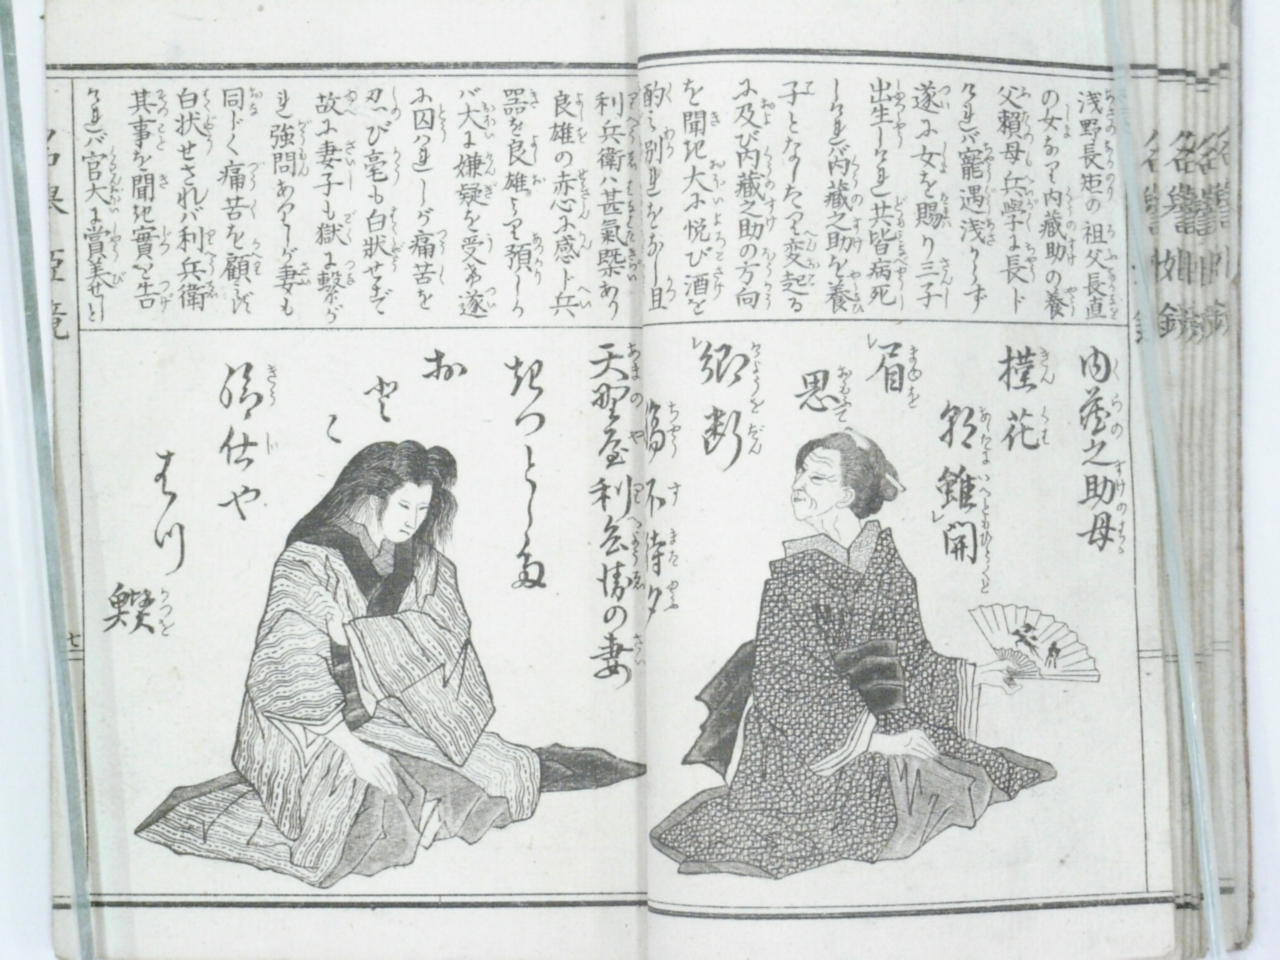 浅野長矩の祖父長直
の女なり内藏助の養
父賴母兵學に長ド
けれバ寵遇浅からず
遂に女を賜り三子
出生しけれ共皆病死
しけれバ内藏之助を養
子となしたり変起る
に及び内藏之助の方向
を聞き大に悦び酒を
酌み別れをなし且
利兵衛ハ甚氣槩あり
良雄の赤心に感ト兵
器を良雄より預りし
バ大に嫌疑を受け遂
に囚はれしが痛苦を
忍び毫も白狀せず
故に妻子も獄に繋が
れ強問ありしが妻も
同トく痛苦を顧ず
白状せされバ利兵衛
其事を聞き實を告
けれバ官大に賞美せりと
内藏之助母
槿花
朝雖開
眉
思
卿断
腸不待夕
天野屋利兵衛の妻
おとこ
給仕や
はつ
鰹
七